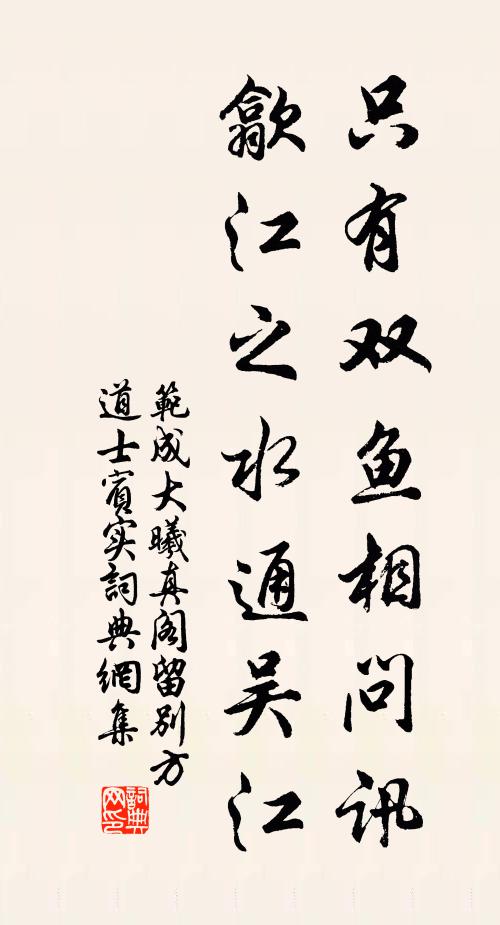 只有双鱼相问讯
歙江之水通吴江
範成大曦真阁留别方
道士賓实詞典網集
詞典网印